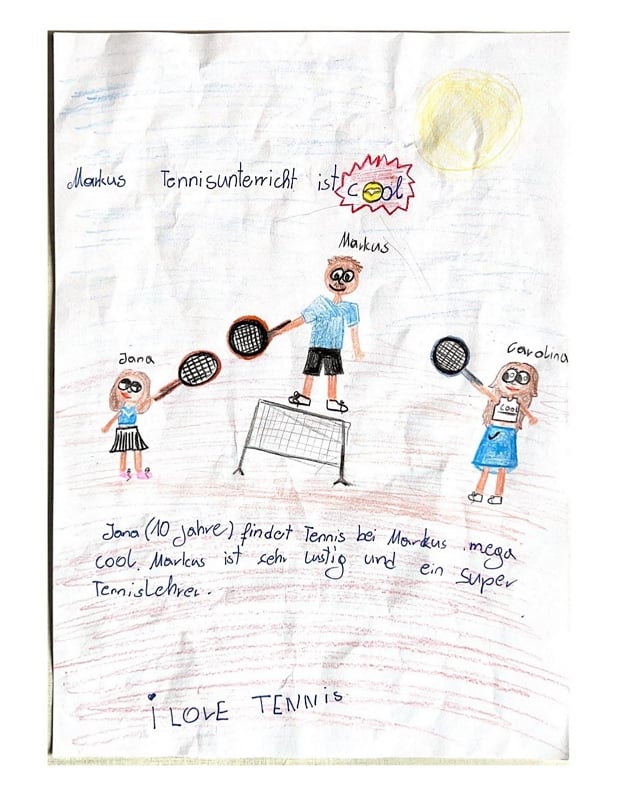 Markus Tennisunterricht ist cool
Markus
Jana
Carolina
COOL
Jana (10 Jahre) findet Tennis bei Markus mega
cool. Markus ist sehr lustig und ein super
Tennislehrer.
i LOVE TENNIS